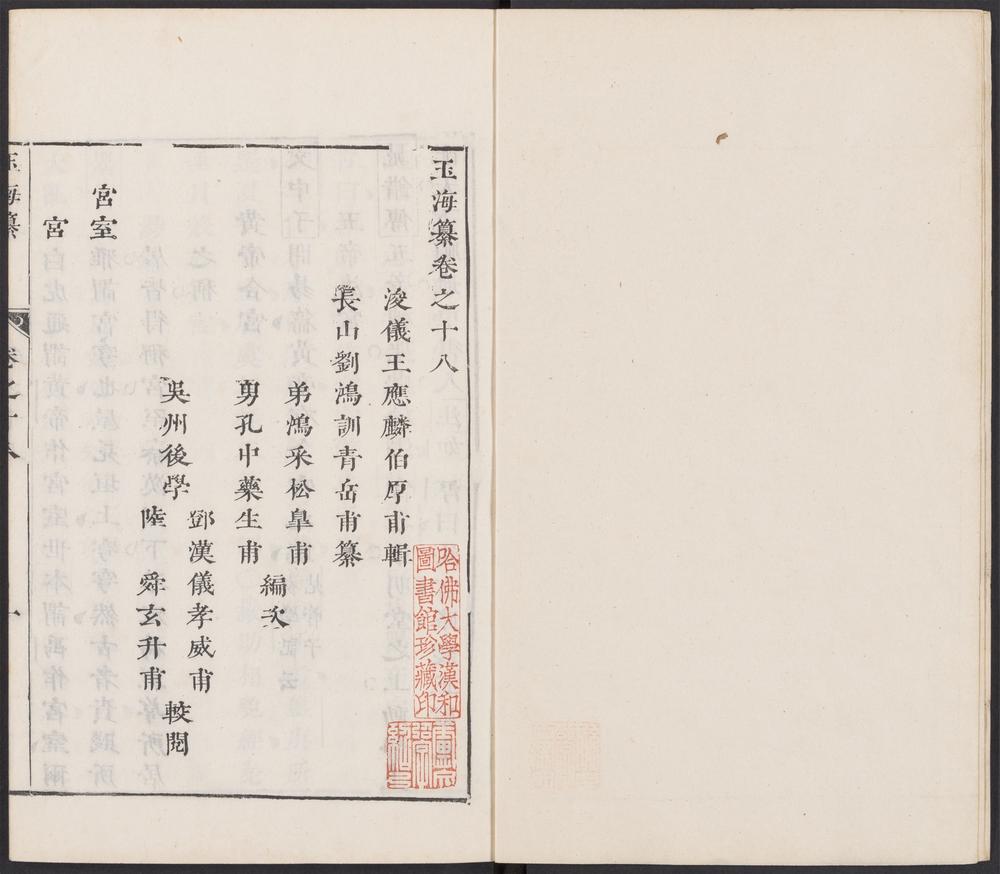 玉海纂卷之十八
浚儀王應麟伯厚甫輯
長山劉鴻訓青岳甫纂
弟鴻采松臯甫
男孔中藥生甫
編次
吳州後學
鄧漢儀孝威甫
陸舜玄升甫
較閱
宮室
宮
玉海纂
卷之十八
一
哈佛大學漢和
圖書館珍藏印